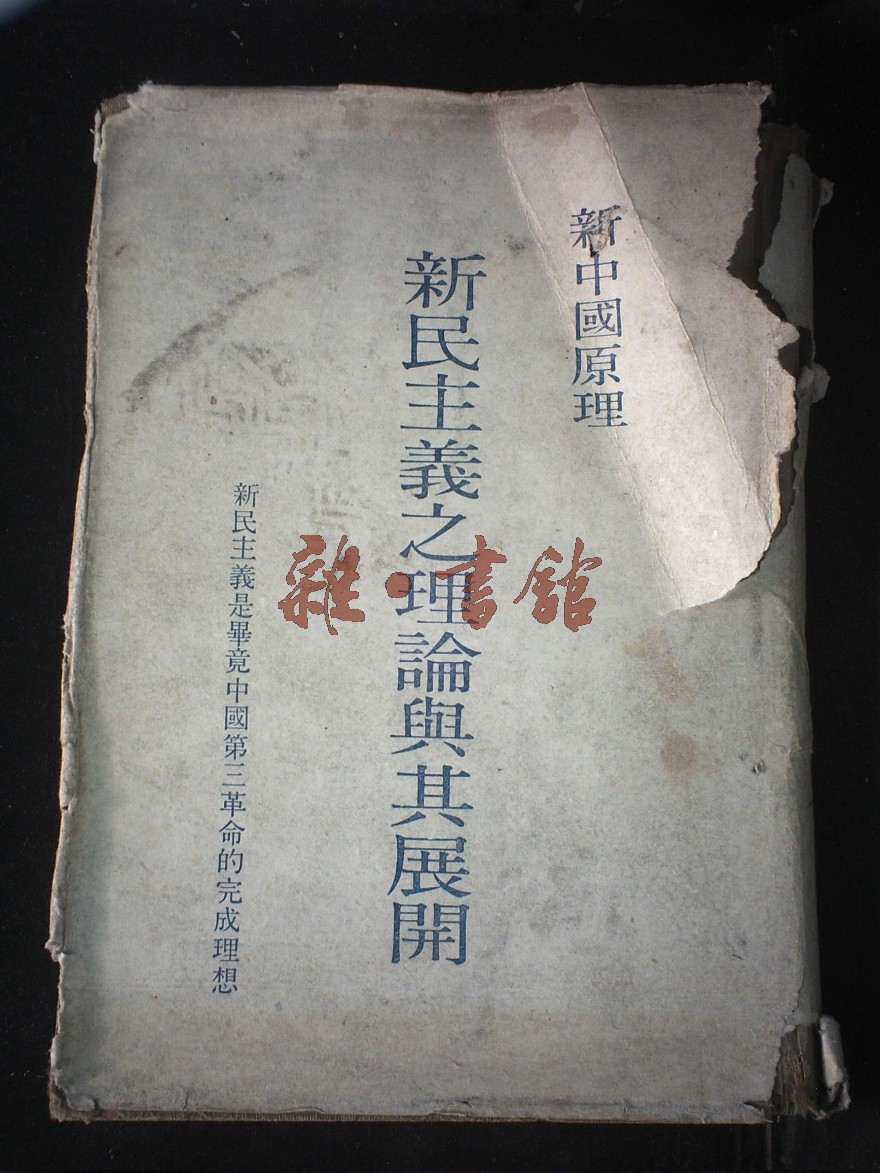 新中國原理
新民主義之理論與其展開
新民主義是畢竟中國第三革命的完成理想
雜·書館